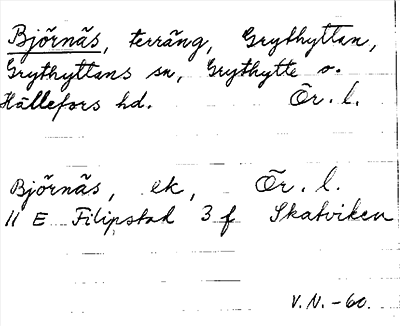 Björnäs, terräng, Grythyttan,
Grythyttans sn, Grythytte o.
Hällefors hd. Ör. l.
Björnäs, ek, Ör. l.
11 E Filipstad 3 f Skatviken
V.N. -60.